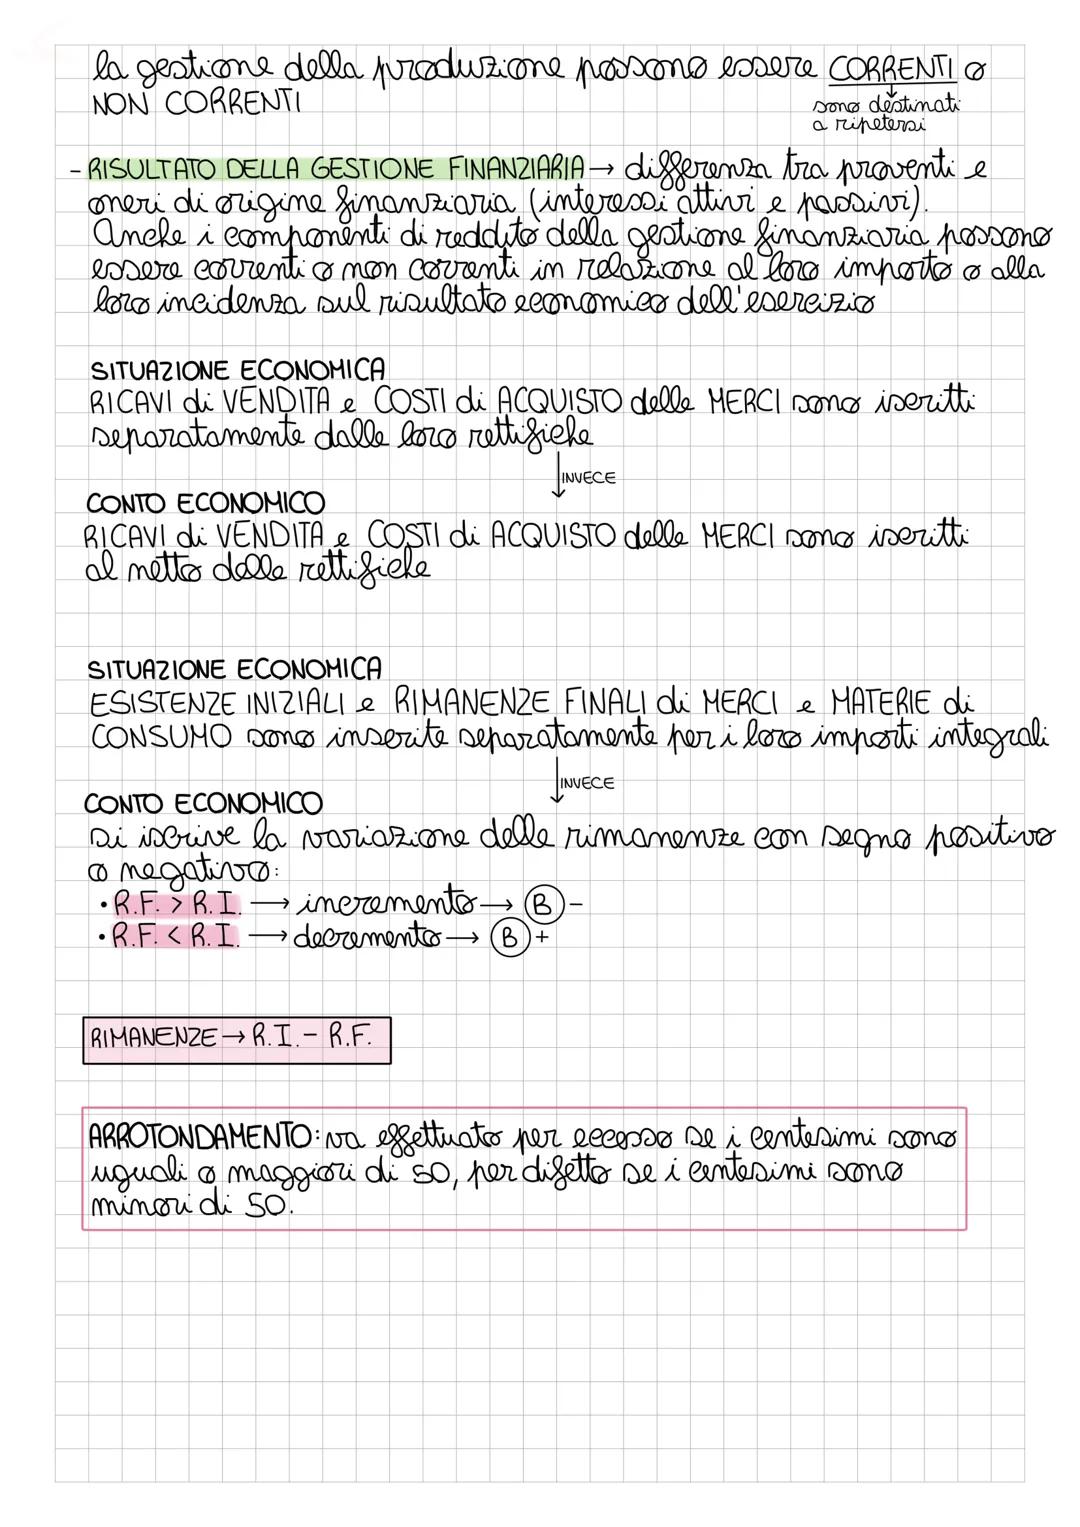 la gestione della produzione possono essere CORRENTI o
NON CORRENTI
sono destinati
a ripetersi
- RISULTATO DELLA GESTIONE FINANZIARIA → differenza tra proventi e
oneri di origine finanziaria (interessi attivi e passivi).
Anche i componenti di reddito della gestione finanziaria possono
essere correnti o non correnti in relazione al loro importo o alla
loro incidenza sul risultato economico dell'esercizio
SITUAZIONE ECONOMICA
RICAVI di VENDITA e COSTI di ACQUISTO delle MERCI sono iscritti
separatamente dalle loro rettifiche
↓ INVECE
CONTO ECONOMICO
RICAVI di VENDITA e COSTI di ACQUISTO delle MERCI sono iscritti
al netto delle rettifiche
SITUAZIONE ECONOMICA
ESISTENZE INIZIALI e RIMANENZE FINALI di MERCI e MATERIE di
CONSUMO sono inserite separatamente per i loro importi integrali
↓ INVECE
CONTO ECONOMICO
si iscrive la variazione delle rimanenze con segno positivo
o negativo:
• R.F. > R.I. → incremento → B -
• R.F. < R.I. → decremento → B +
RIMANENZE → R.I. - R.F.
ARROTONDAMENTO: va effettuato per eccesso se i centesimi sono
uguali o maggiori di 50, per difetto se i centesimi sono
minori di 50.